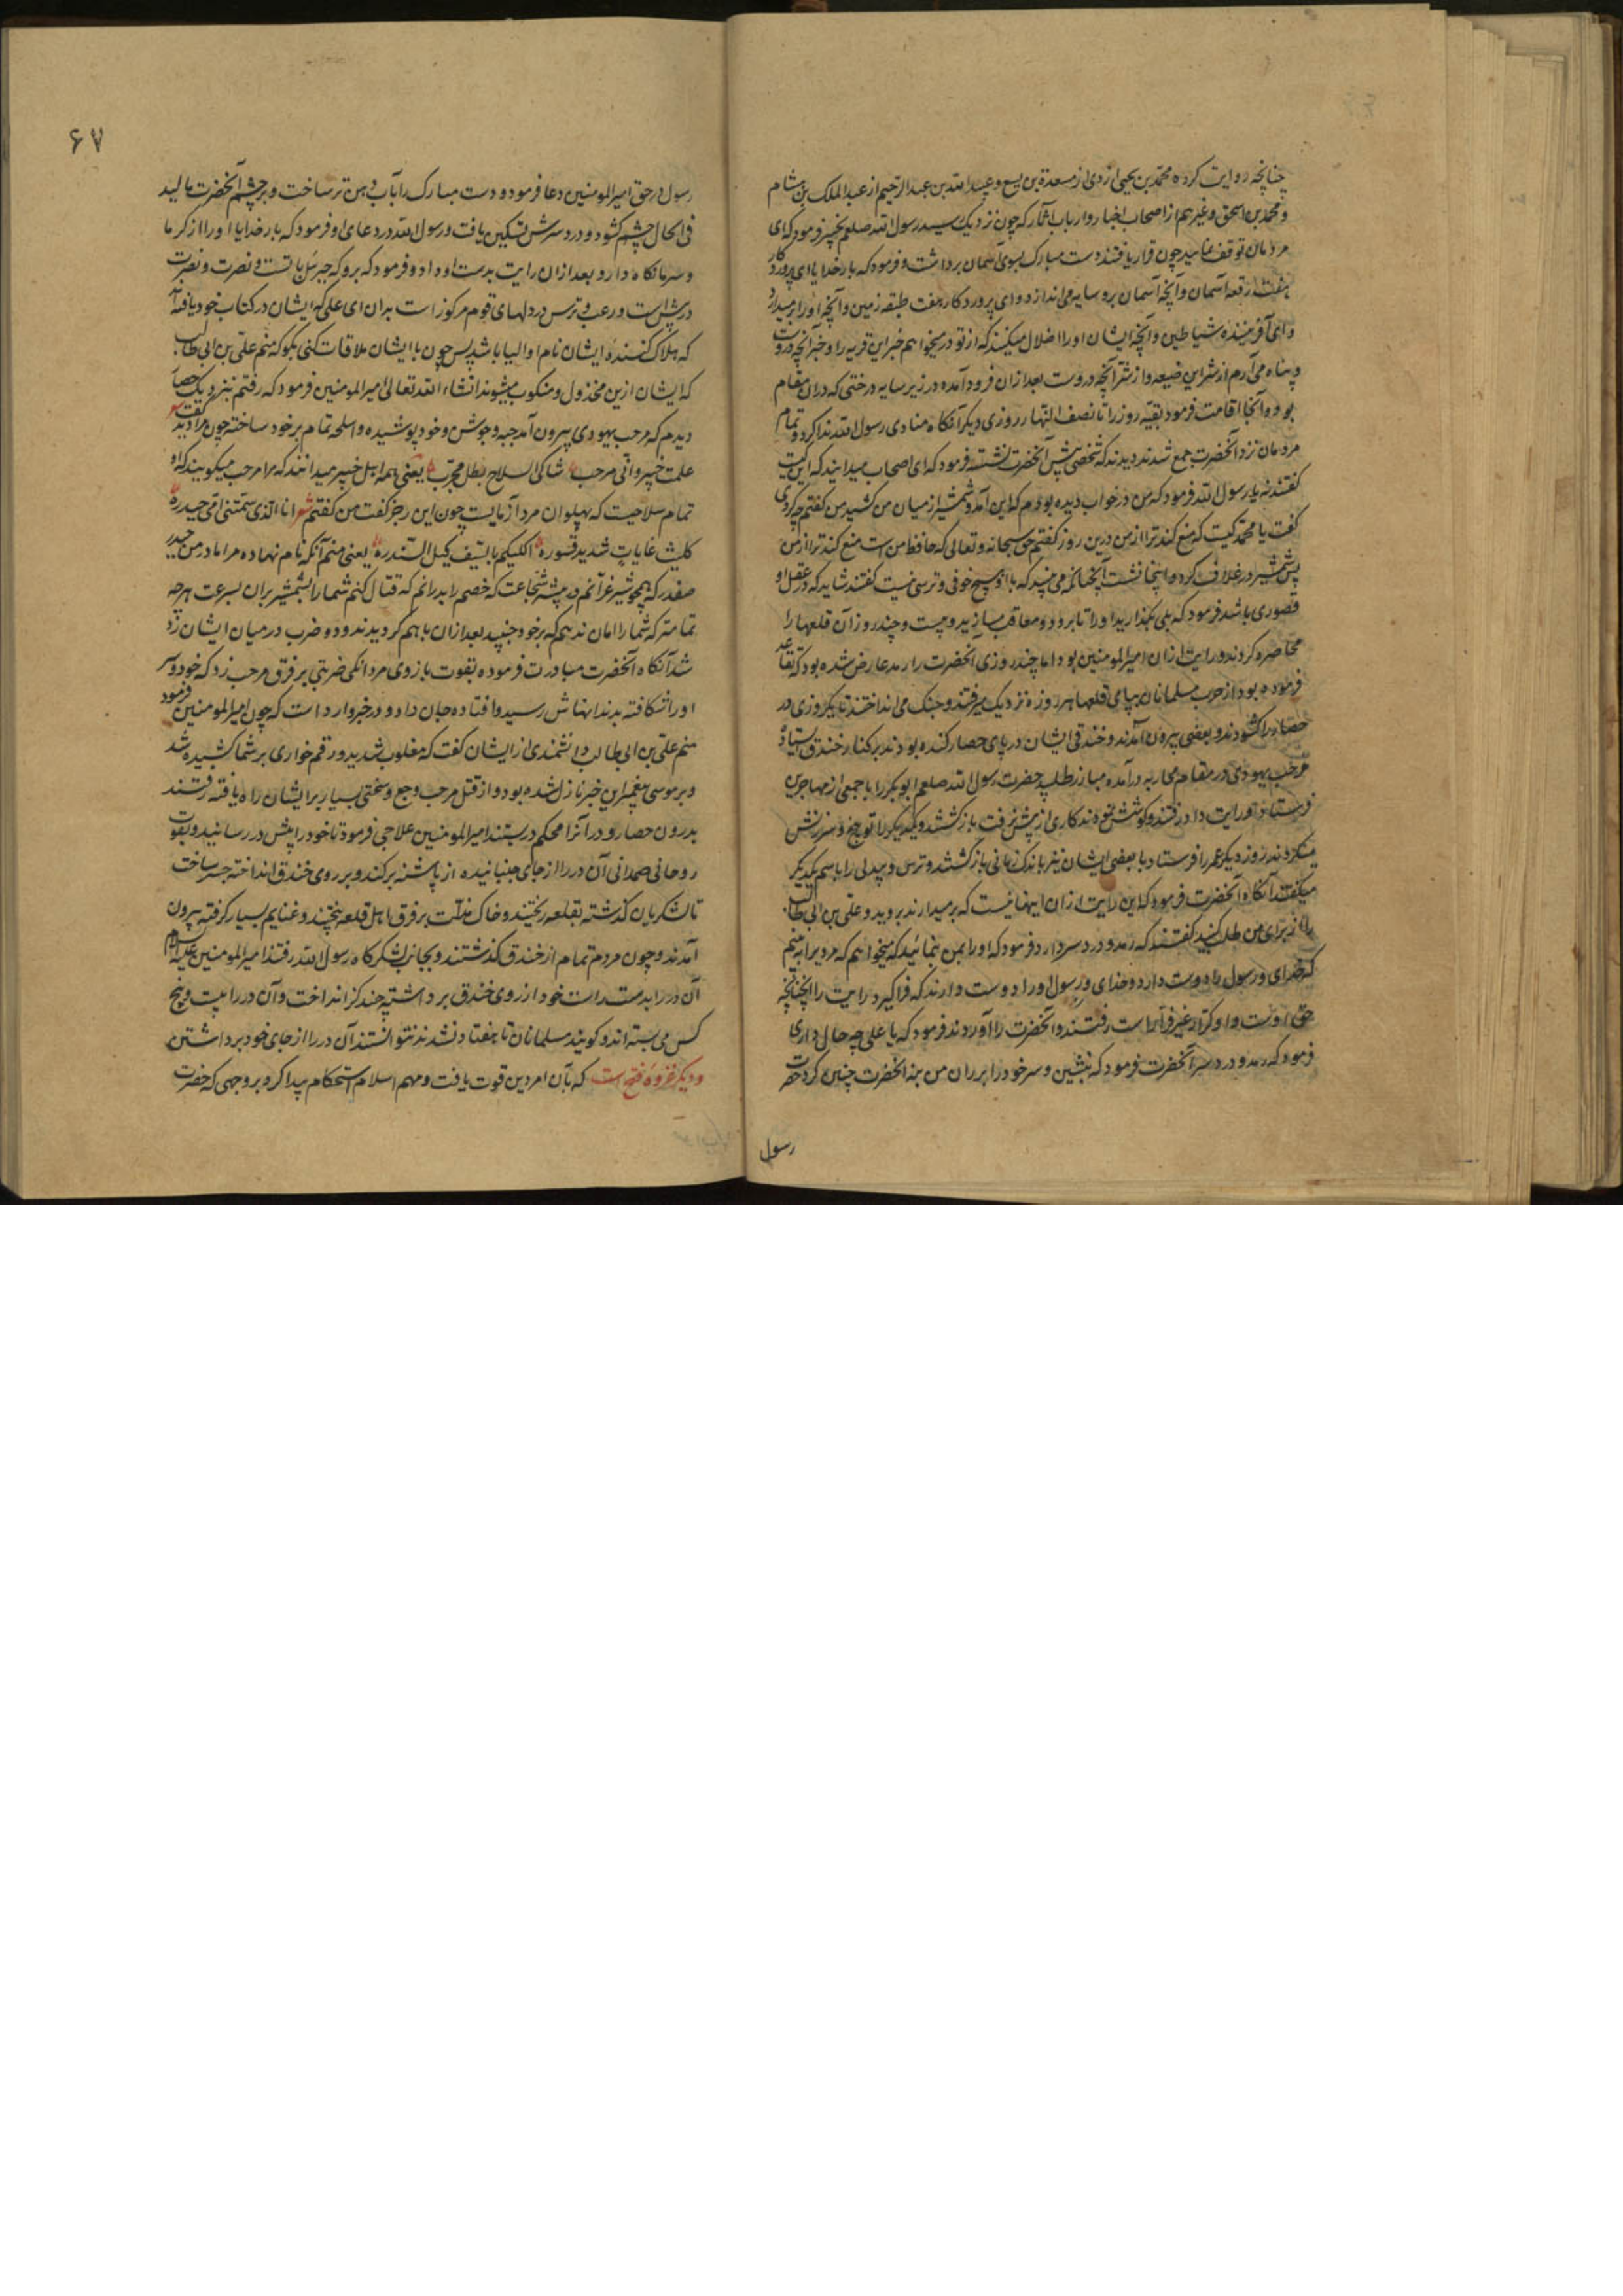 چنانچه روایت کرده محمد بن یحیی ازدی از مسعدة بن یسع و عبید الله بن عبد الرحیم از عبد الملک بن هشام
و محمد بن اسحق و غیرهم از اصحاب اخبار و ارباب آثار که چون نزدیک رسید رسول الله صلعم بخیبر فرمود که ای
مردمان توقف نمایید چون قرار یافتند دست مبارک بسوی آسمان برداشت و فرمود که بار خدایا ای پروردگار
هفت رقعه آسمان و آنچه آسمان برو سایه می اندازد و ای پروردکار هفت طبقه زمین و آنچه او را برمیدارد
و ای آفریننده شیاطین و آنچه ایشان او را اضلال میکنند که از تو در میخواهم خیر این قریه را و خیر آنچه دروست
و پناه می آرم از شر این ضیعه و از شر آنچه دروست بعد ازان فرود آمده در زیر سایه درختی که دران مقام
بود و آنجا اقامت فرمود بقیه روز را تا نصف النهار روزی دیکر آنکاه منادی رسول الله ندا کرد و تمام
مردمان نزد آنحضرت جمع شدند دیدند که شخصی پیش آنحضرت نشسته فرمود که ای اصحاب میدانید که این کیست
کفتند نه یا رسول الله فرمود که من در خواب دیده بودم که این آمد و شمشیر از میان من کشید من کفتم چه کردی
کفت یا محمد کیست که منع کند ترا از من درین روز کفتم حق سبحانه و تعالی که حافظ من است منع کند ترا از من
پس شمشیر در غلاف کرد و اینجا نشست آنچنانکه می بینید که با او هیچ خوفی و ترسی نیست کفتند شاید که در عقل او
قصوری باشد فرمود که بلی بگذارید او را تا برود و معاقب مسازید و بیست و چند روز آن قلعها را
محاصره کردند و رایت ازان امیر المومنین بود اما چند روزی آنحضرت را رمد عارض شده بود که تقاعد
فرموده بود از حرب مسلمانان بپای قلعها هر روزه نزدیک میرفتند و جنک می انداختند تا یکروزی در
حصار را کشودند و بعضی بیرون آمدند و خندقی ایشان در پای حصار کنده بودند بر کنار خندق ایستاده
مرحب یهودی در مقام محاربه درآمده مبارز طلبید حضرت رسول الله صلعم ابو بکر را با جمعی از مهاجرین
فرستاد و رایت داد رفتند و کوشش نمودند کاری از پیش نرفت باز کشتند و یکدیکر را توبیخ و سرزنش
میکردند روز دیکر عمر را فرستاد با بعضی ایشان نیز باندک زمانی باز کشتند و ترس و بیدلی را باسم یکدیکر
میکفتند آنکاه آنحضرت فرمود که این رایت ازان اینها نیست که برمیدارند بروید و علی بن ابی طالب
را از برای من طلب کنید کفتند که رمد و درد سر دارد فرمود که او را بمن بنمائید که میخواهم که مردیرا ببینم
که خدای و رسول را دوست دارد و خدای و رسول او را دوست دارند که فرا کیرد رایت را آنچنانچه
حق اوست و او کرار غیر فرار است رفتند و آنحضرت را آوردند فرمود که یا علی چه حال داری
فرمود که رمد و درد سر آنحضرت فرمود که بنشین و سر خود را بر ران من بنه آنحضرت چنین کرد حضرت
رسول
۶۷
رسول در حق امیر المومنین دعا فرمود و دست مبارک را بآب دهن تر ساخت و بر چشم آنحضرت مالید
فی الحال چشم کشود و درد سرش تسکین یافت و رسول الله در دعای او فرمود که بار خدایا او را از کرما
و سرما نکاه دار و بعد ازان رایت بدست او داد و فرمود که برو که جبرئیل با تست و نصرت و نصرت
در پیش است و رعب و ترس در دلهای قوم مرکوز است بدان ای علی که ایشان در کتاب خود یافته اند
که هلاک کننده ایشان نام او الیا باشد پس چون با ایشان ملاقات کنی بگو که منم علی بن ابی طالب
که ایشان ازین مخذول و منکوب میشوند انشاء الله تعالی امیر المومنین فرمود که رفتم بنزدیک حصار
دیدم که مرحب یهودی بیرون آمد جبه و جوشن و خود پوشیده و اسلحه تمام بر خود ساخته چون مرا دید کفت شعر
علمت خیبر و انی مرحب شاکی السلاح بطل مجرب یعنی همه اهل خیبر میدانند که مرا مرحب میکویند که او
تمام سلاحیست که پهلوان مرد آزمایست چون این رجز کفت من کفتم شعر انا الذی سمتنی امی حیدره
کلیث غابات شدید قسوره اکلیکم بالسیف کیل السندره یعنی منم آنکه نام نهاده مرا مادر من حیدر
صفدر که همچو شیر غرانم در بیشه شجاعت که خصم را بدرانم که قتال کنم شما را بشمشیر بران بسرعت هر چه
تمامتر که شما را امان ندهم که برخود جنبید بعد ازان باهم کردیدند و دو ضرب در میان ایشان زد
شد آنکاه آنحضرت مبادرت فرموده بقوت بازوی مردانکی ضربتی بر فرق مرحب زد که خود و سر
او را شکافته بدندانهاش رسید و افتاده جان داد و در خبر وارد است که چون امیر المومنین فرمود
منم علی بن ابی طالب دانشمندی از ایشان کفت که مغلوب شدید و رقم خواری بر شما کشیده شد
و بر موسی پیغمبر این خبر نازل شده بود و از قتل مرحب وجع و سختی بسیار بر ایشان راه یافته رفتند
بدرون حصار و در آنرا محکم در بستند امیر المومنین علاجی فرمود تا خود را پیش در رسانید و بقوت
روحانی صمدانی آن در را از جای جنبانیده از پاشنه برکند و بر روی خندق انداخته جسر ساخت
تا لشکریان کذشته بقلعه ریختند و خاک مذلت بر فرق اهل قلعه بیختند و غنایم بسیار کرفته بیرون
آمدند و چون مردم تمام از خندق کذشتند و بجانب لشکرکاه رسول الله رفتند امیر المومنین علیه السلام
آن در را بدست راست خود از روی خندق برداشته چند کز انداخت و آن در را بیست و پنج
کس می بسته اند و کویند مسلمانان تا هفتاد نشدند نتوانستند آن در را از جای خود برداشتن
و دیکر غزوه فتح است که بآن امر دین قوت یافت و مهم اسلام استحکام پیدا کرد بر وجهی که حضرت